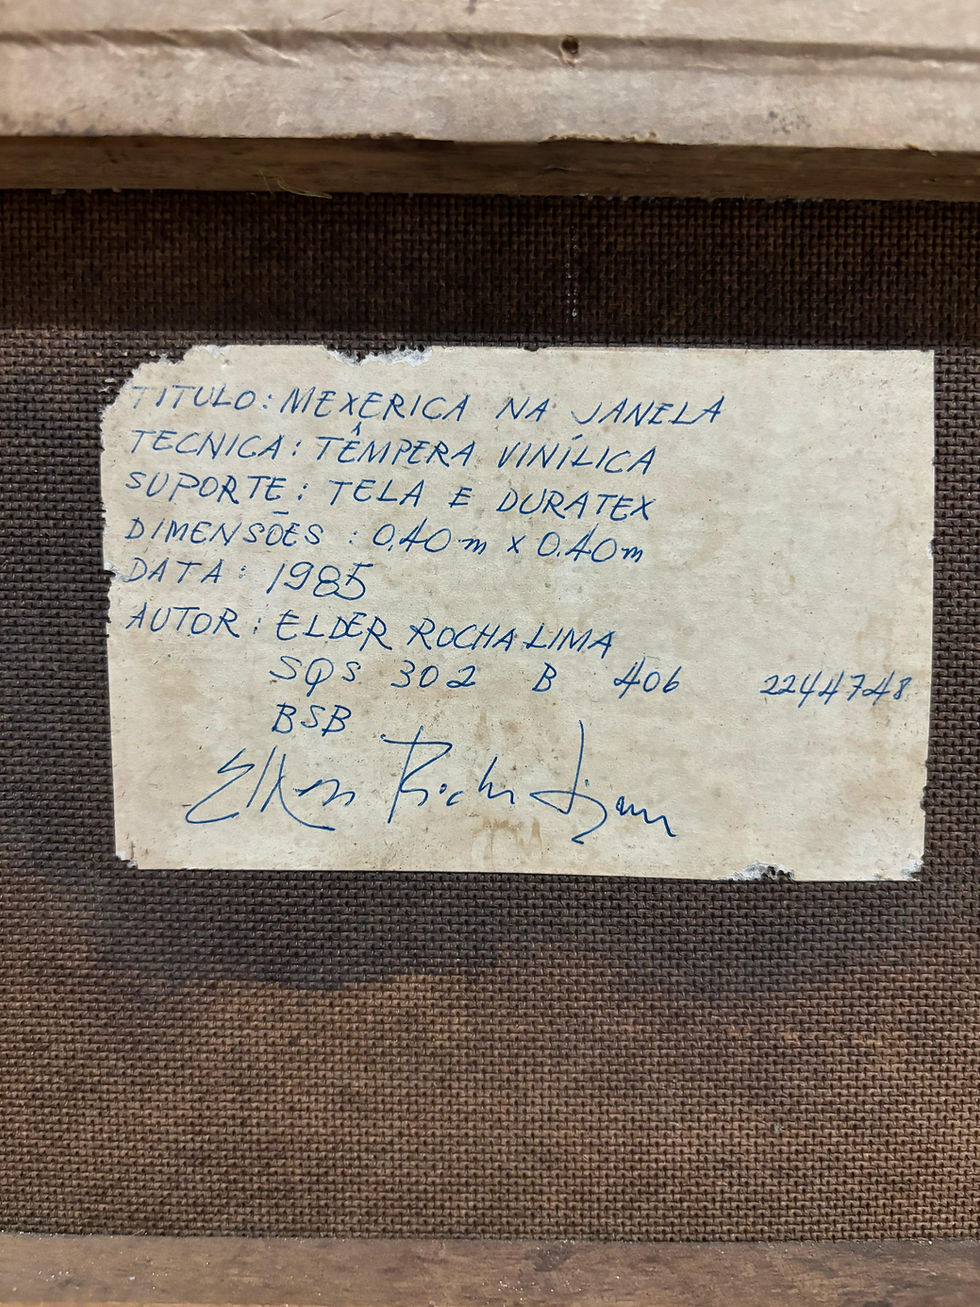 TITULO: MEXERICA NA JANELA
TECNICA: TÊMPERA VINÍLICA
SUPORTE: TELA E DURATEX
DIMENSÕES: 0,40m x 0.40m
DATA: 1985
AUTOR: ELDER ROCHA LIMA
SQS 302 B 406 2244748
BSB
Elder Rocha Lima